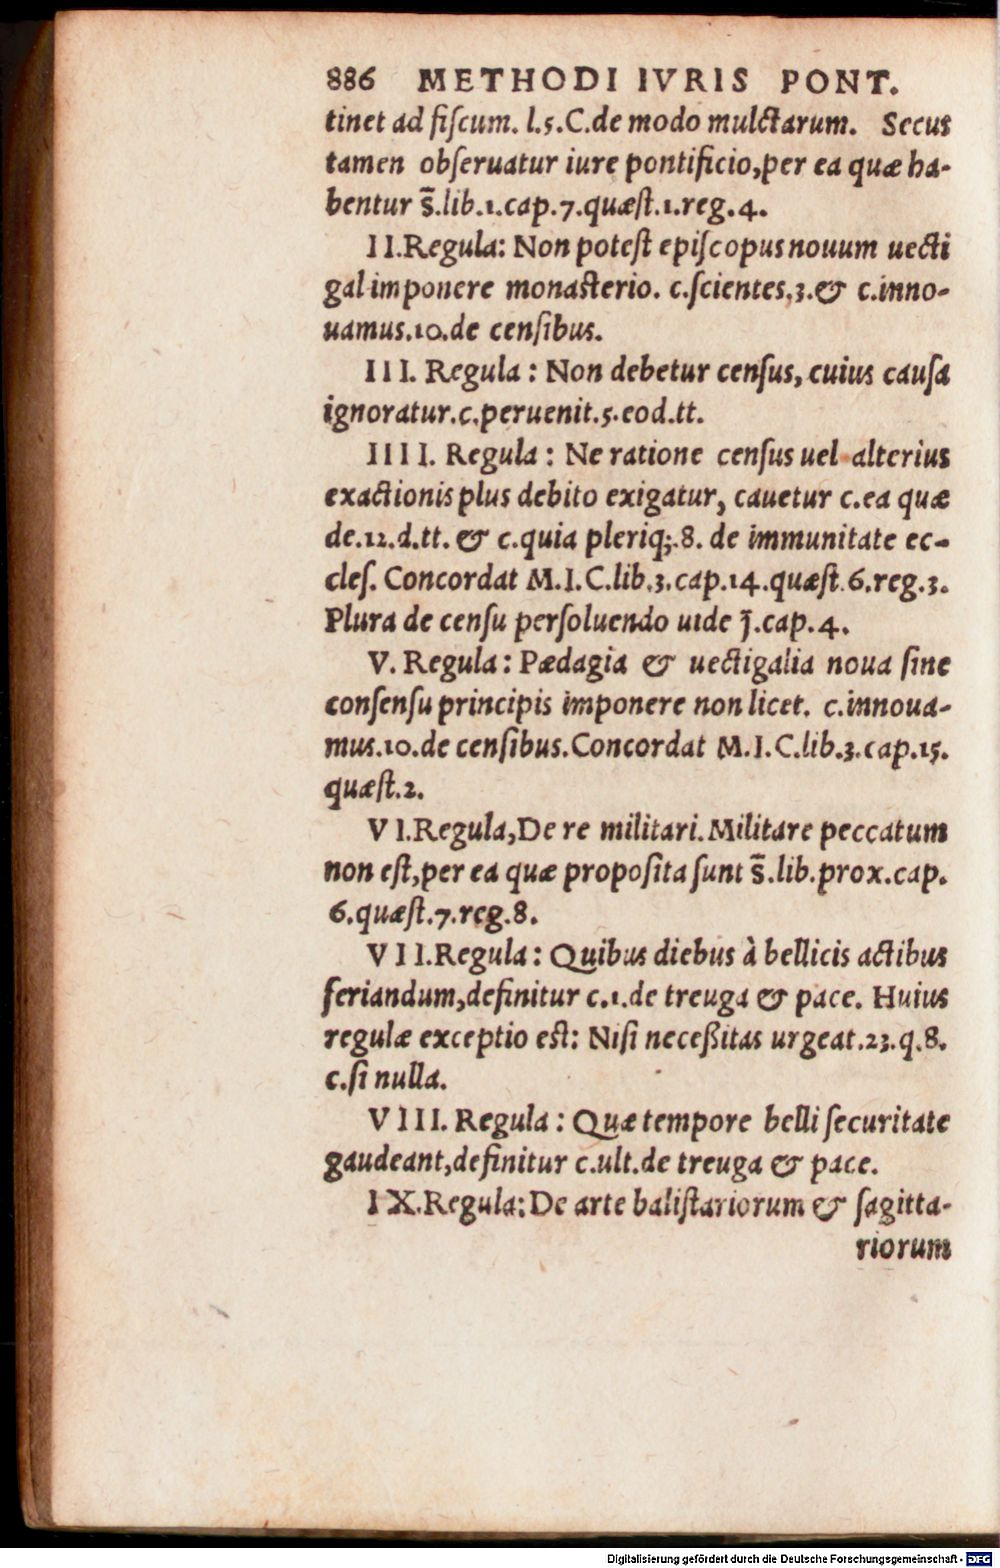 886 METHODI IVRIS PONT.
tinet ad fiſcum. l.5.C.de modo mulctarum. Secus
tamen obſeruatur iure pontificio,per ea quæ ha-
bentur s̃.lib.1.cap.7.quæſt.1.reg.4.
II.Regula: Non poteſt epiſcopus nouum uecti
gal imponere monaſterio. c.ſcientes.3.& c.inno-
uamus.10.de cenſibus.
III. Regula : Non debetur cenſus, cuius cauſa
ignoratur.c.peruenit.5.eod.tt.
IIII. Regula : Ne ratione cenſus uel alterius
exactionis plus debito exigatur, cauetur c.ea quæ
de.12.d.tt. & c.quia pleriq;.8. de immunitate ec-
cleſ. Concordat M.I.C.lib.3.cap.14.quæſt.6.reg.3.
Plura de cenſu perſoluendo uide j̃.cap.4.
V. Regula : Pædagia & uectigalia noua ſine
conſenſu principis imponere non licet. c.innoua-
mus.10.de cenſibus.Concordat M.I.C.lib.3.cap.15.
quæſt.2.
VI.Regula,De re militari.Militare peccatum
non eſt,per ea quæ propoſita ſunt s̃.lib.prox.cap.
6.quæſt.7.reg.8.
VII.Regula : Quibus diebus à bellicis actibus
feriandum,definitur c.1.de treuga & pace. Huius
regulæ exceptio eſt: Niſi neceßitas urgeat.23.q.8.
c.ſi nulla.
VIII. Regula : Quæ tempore belli ſecuritate
gaudeant,definitur c.ult.de treuga & pace.
IX.Regula:De arte baliſtariorum & ſagitta-
riorum
Digitalisierung gefördert durch die Deutsche Forschungsgemeinschaft - DFG